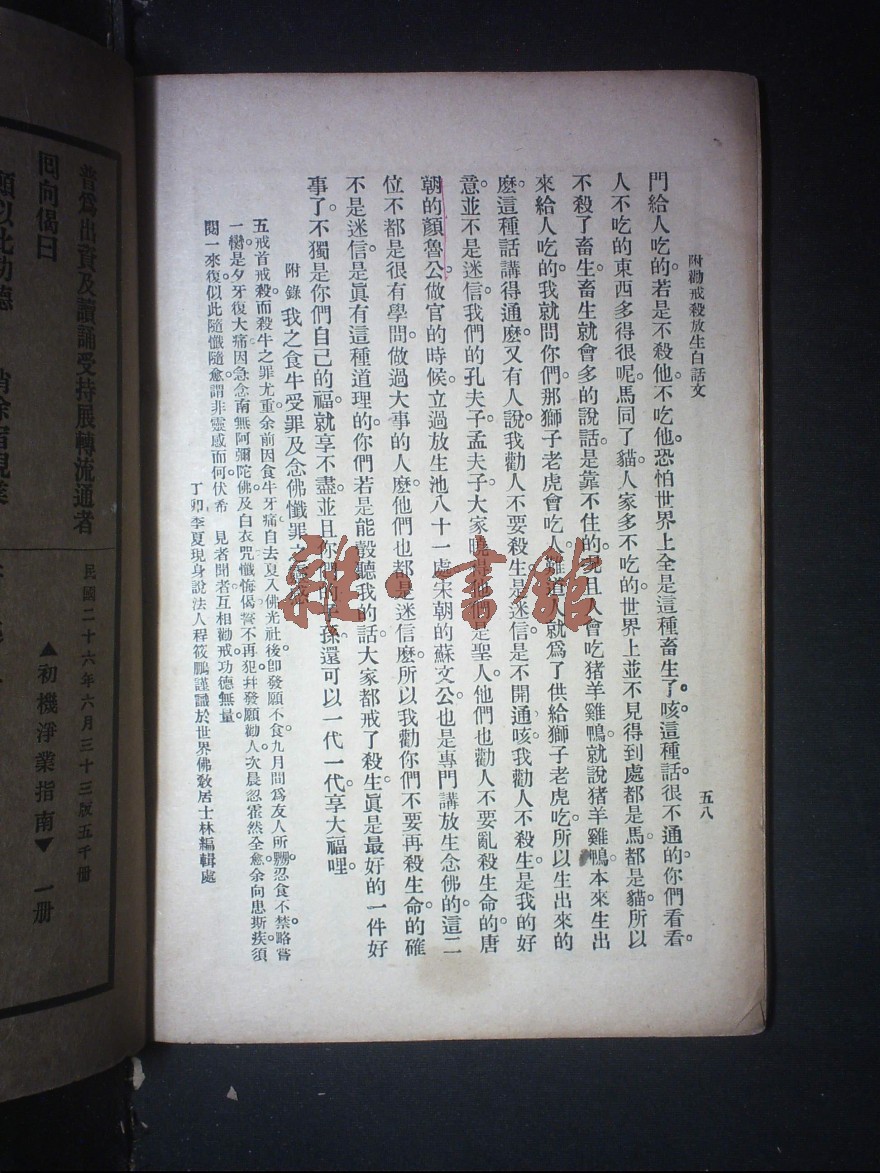 附勸戒殺放生白話文
五八
門給人吃的。若是不殺他。不吃他。恐怕世界上全是這種畜生了。咳。這種話。很不通的。你們看看。
人不吃的東西多得很呢。馬同了貓。人家多不吃的。世界上並不見得到處都是馬都是貓。所以
不殺了畜生。畜生就會多的說話。是靠不住的。況且人會吃猪羊雞鴨。就說猪羊雞鴨。本來生出
來給人吃的。我就問你們。那獅子老虎會吃人。難道人就爲了供給獅子老虎吃。所以生出來的
麼。這種話講得通麼。又有人說。我勸人不要殺生。是迷信。是不開通。咳。我勸人不殺生。是我的好
意。並不是迷信。我們的孔夫子孟夫子。大家曉得他們是聖人。他們也勸人不要亂殺生命的。唐
朝的顏魯公。做官的時候。立過放生池八十一處。宋朝的蘇文公。也是專門講放生念佛的。這二
位不都是很有學問。做過大事的人麼。他們也都是迷信麼。所以我勸你們不要再殺生命的。確
不是迷信。是眞有這種道理的。你們若是能彀聽我的話。大家都戒了殺生。眞是最好的一件好
事了。不獨是你們自己的福。就享不盡。並且你們的子孫。還可以一代一代享大福哩。
附錄 我之食牛受罪及念佛懺罪之
五戒首戒殺。而殺牛之罪尤重。余前因食牛牙痛。自去夏入佛光社後。卽發願不食。九月間爲友人所嬲。忍食不禁。略嘗
一臠。是夕牙復大痛。因急念南無阿彌陀佛。及白衣咒懺悔偈。誓不再犯。幷發願勸人。次晨忽霍然全愈。余向患斯疾。須
閱一來復。似此隨懺隨愈。謂非靈感而何。伏希 見者聞者。互相勸戒。功德無量。
丁卯季夏現身說法人程筱鵬謹識於世界佛敎居士林編輯處
普爲出資及讀誦受持展轉流通者
回向偈曰
願以此功德 消除宿現業
民國二十六年六月三十三版五千册
▲初機淨業指南▼ 一册